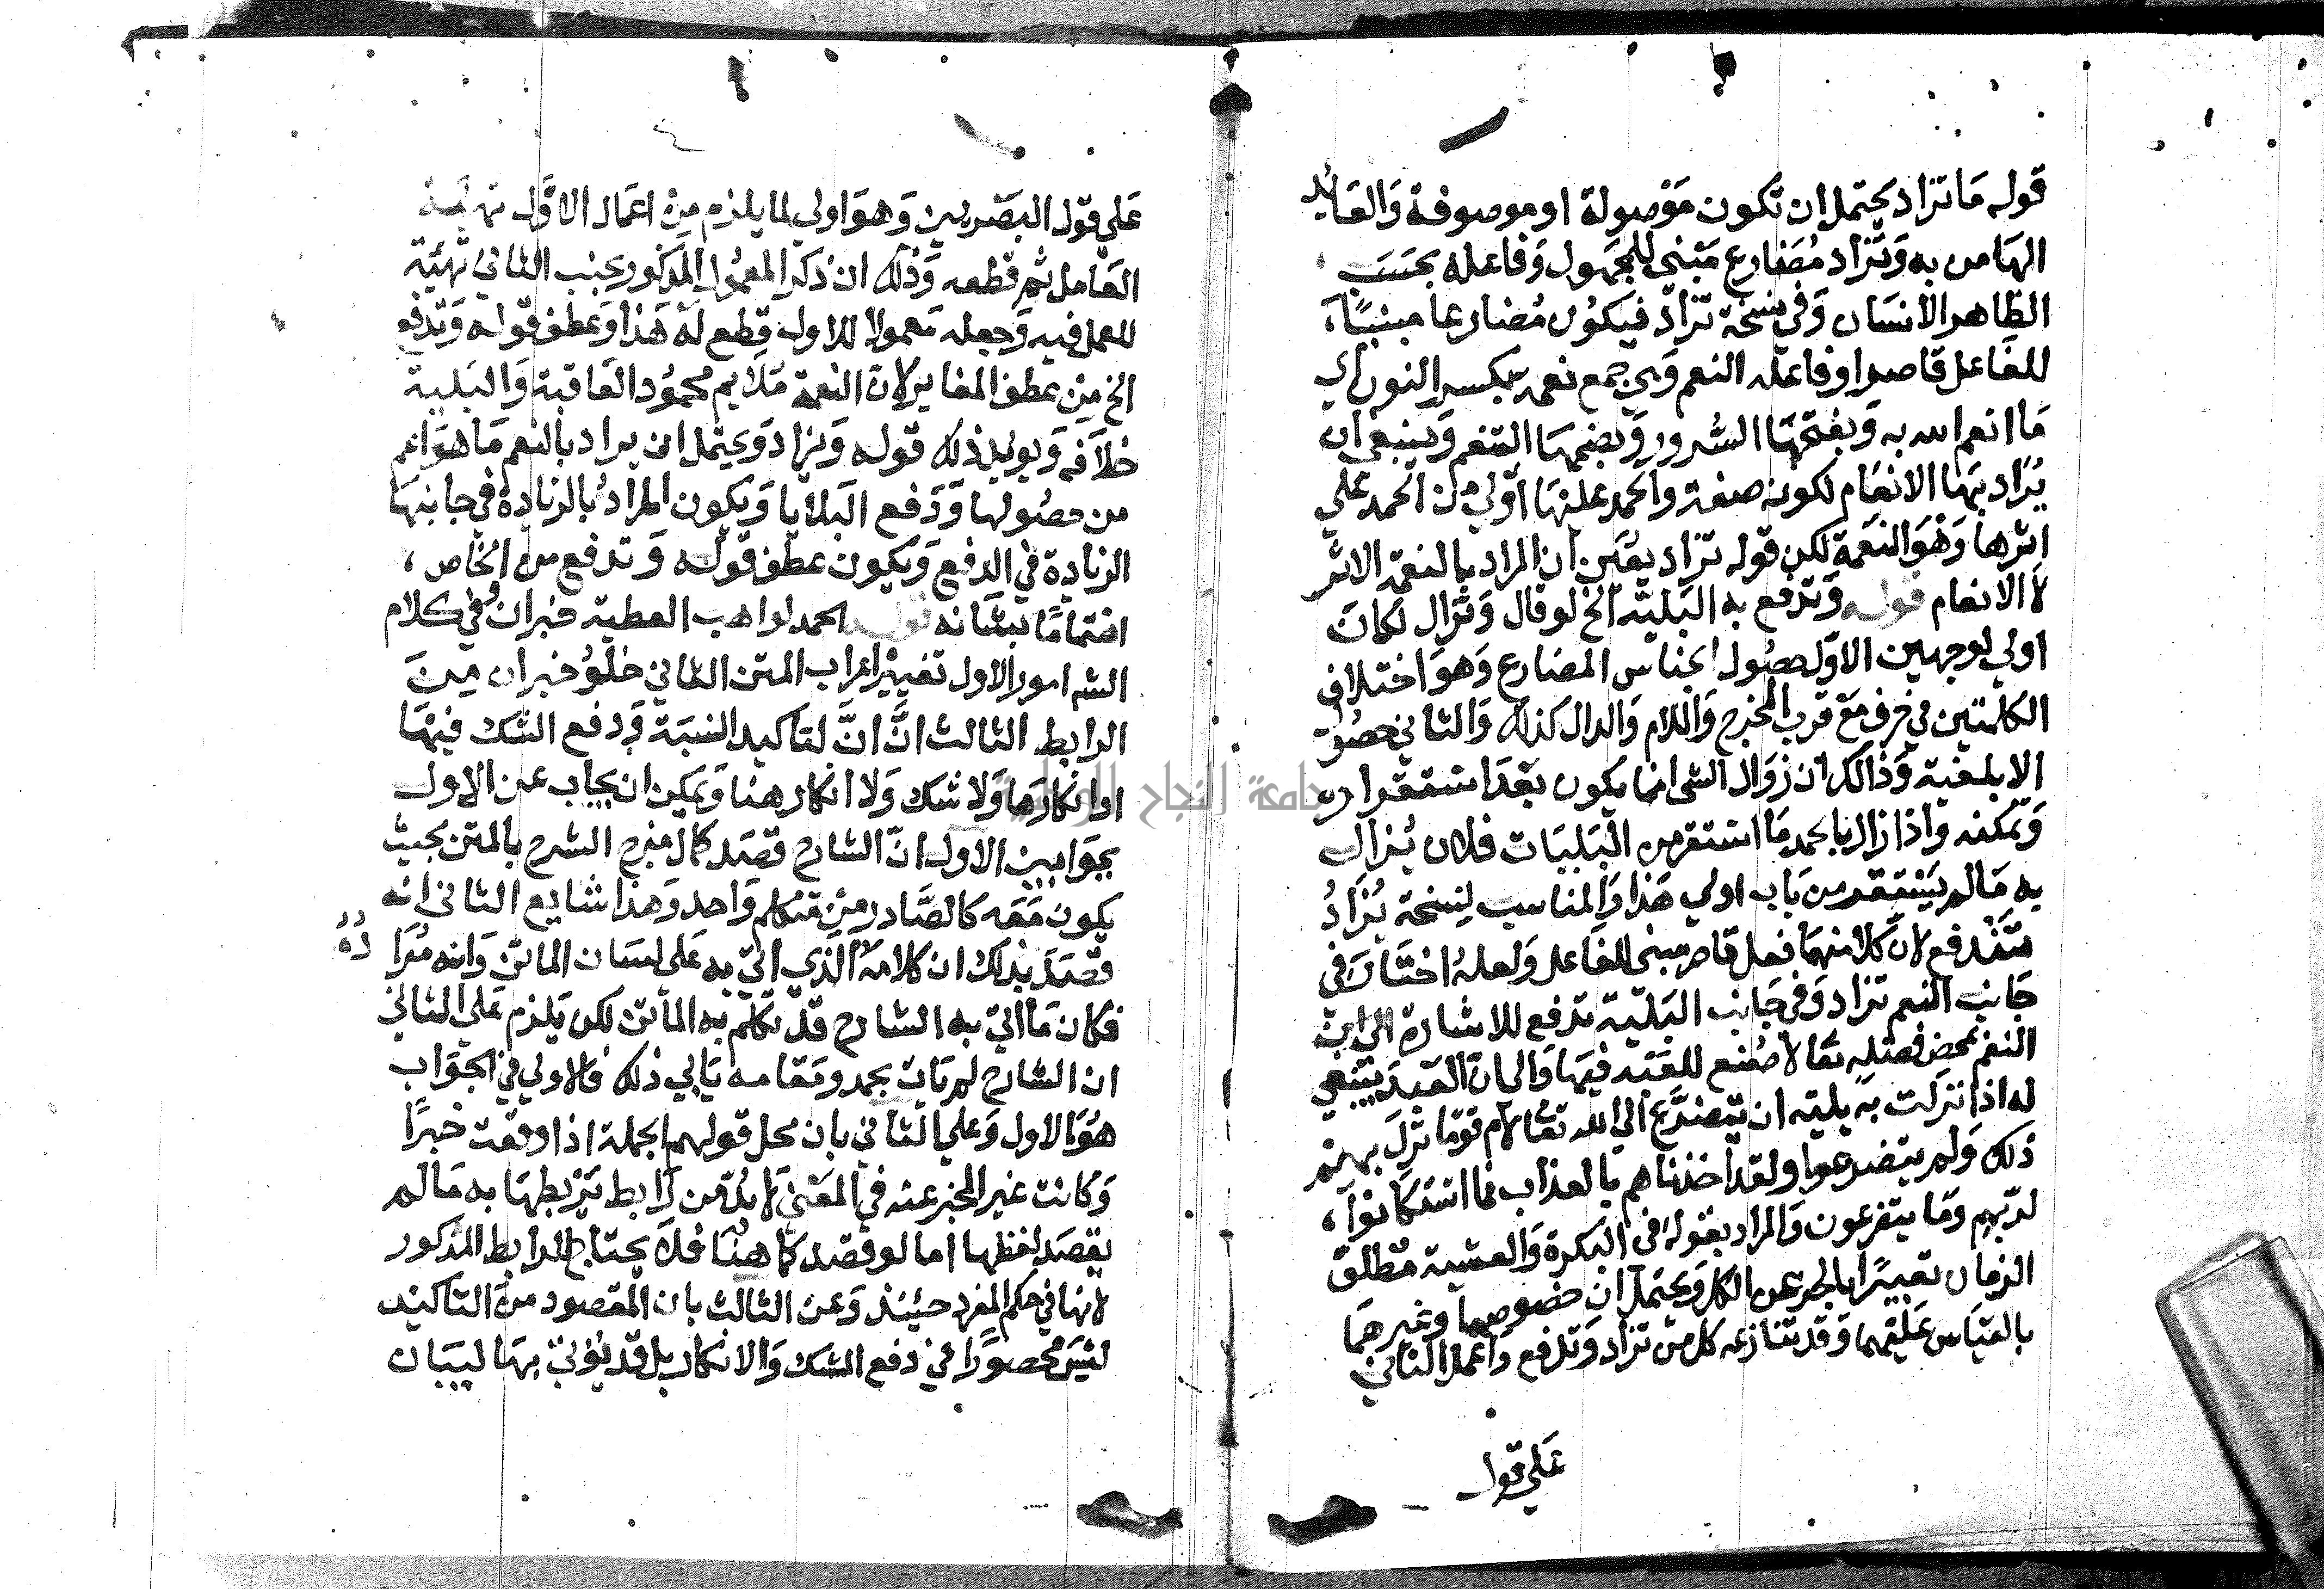 قوله ما تزاد يحتمل ان تكون موصولة او موصوفة والعايد
الهامن به وتزاد مضارع مبني للمجهول وفاعله بحسب
الظاهر الانسان وفي نسخة تزاد فيكون مضارعا مبنيا
للفاعل قاصرا وفاعله النعم وهي جمع نعمه بكسر النون اي
ما انعم الله به وبفتحها السرور وبضمها التنعم وينبغي ان
يراد بها الانعام لكونه صفة والحمد عليها اولي من الحمد علي
اثرها وهو النعمة لكن قوله تزاد يعين ان المراد بالنعمة الاثر
لا الانعام قوله وتدفع به البلية الخ لو قال وتزال لكان
اولي لوجهين الاول حصول الجناس المضارع وهو اختلاف
الكلمتين في حرف مع قرب المخرج واللام والدال كذلك والثاني حصول
الابلغية وذالك ان زوال الشي انما يكون بعد استقراره
وتمكنه واذا زال بالحمد ما استقر من البليات فلان يزال
به ما لم يستقر من باب اولي هذا والمناسب لنسخة تزاد
تندفع لان كلا منهما فعل قاصر مبني للفاعل ولعله اختار في
جانب النعم تزاد وفي جانب البلية تدفع للاشارة الي ان
النعم بمحض فضله تعا لا صنع للعبد فيها والي ان العبد ينبغي
له اذا نزلت به بلية ان يتضرع الي الله تعا لام قوما نزل بهم
ذلك ولم يتضرعوا ولقد اخذناهم بالعذاب فما استكانوا
لربهم وما يتضرعون والمراد بقوله في البكرة والعشية مطلق
الزمان تعبيرا بالجزء عن الكل ويحتمل ان خصوصهما وغيرهما
بالقياس عليهما وقد تنازعه كل من تزاد وتدفع واعمل الثاني
علي قول
علي قول البصريين وهو اولي لما يلزم من اعمال الاول تهيئة
العامل ثم قطعه وذلك ان ذكر المعمول المذكور بجنب الثاني تهيئة
للعمل فيه وجعله معمولا للاول قطع له هذا وعطف قوله وتدفع
الخ من عطف المغاير لان النعمة ملايم محمود العاقبة والبلية
خلافه ويويد ذلك قوله وتزاد ويحتمل ان يراد بالنعم ما هو اعم
من حصولها ودفع البلايا ويكون المراد بالزيادة في جانبها
الزيادة في الدفع ويكون عطف قوله وتدفع من الخاص
اهتماما بشانه قوله الحمد لواهب العطية خبران وفي كلام
الشه امور الاول تغيير اعراب المتن الثاني خلو خبران من
الرابط الثالث ان ان لتاكيد النسبة ودفع الشك فيها
او انكارها ولا شك ولا انكار هنا ويمكن ان يجاب عن الاول
بجوابين الاول ان الشارح قصد كمال مزج الشرح بالمتن بحيث
يكون معه كالصادر من متكلم واحد وهذا شايع الثاني انه
قصد بذلك ان كلامه الذي اتي به علي لسان الماتن وانه مرا
ده
فكان ما اتي به الشارح قد تكلم به الماتن لكن يلزم علي الثاني
ان الشارح لم يات بحمد ومقامه يابي ذلك فالاولي في الجواب
هو الاول وعلي الثاني بان محل قولهم الجملة اذا وقعت خبرا
وكانت غير المخبر عنه في المعني لا بد من رابط يربطها به ما لم
يقصد لفظها اما لو قصد كما هنا فلا يحتاج للرابط المذكور
لانها في حكم المفرد حينئذ وعن الثالث بان المقصود من التاكيد
ليس محصورا في دفع الشك والانكار بل قد يؤتي بها لبيان
جامعة النجاح الوطنية